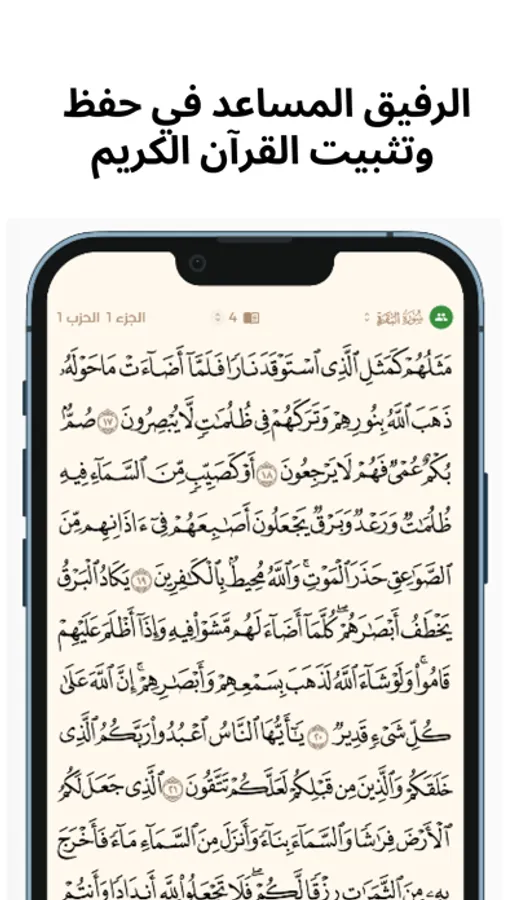 الرفيق المساعد في حفظ
وتثبيت القرآن الكريم
سورة البقرة 4 الجزء 1 الحزب 1
مَثَلُهُمْ كَمَثَلِ ٱلَّذِى ٱسْتَوْقَدَ نَارًا فَلَمَّآ أَضَآءَتْ مَا حَوْلَهُۥ
ذَهَبَ ٱللَّهُ بِنُورِهِمْ وَتَرَكَهُمْ فِى ظُلُمَٰتٍ لَّا يُبْصِرُونَ ١٧ صُمٌّۢ
بُكْمٌ عُمْىٌ فَهُمْ لَا يَرْجِعُونَ ١٨ أَوْ كَصَيِّبٍ مِّنَ ٱلسَّمَآءِ فِيهِ
ظُلُمَٰتٌ وَرَعْدٌ وَبَرْقٌ يَجْعَلُونَ أَصَٰبِعَهُمْ فِىٓ ءَاذَانِهِم مِّنَ
ٱلصَّوَٰعِقِ حَذَرَ ٱلْمَوْتِ ۚ وَٱللَّهُ مُحِيطٌۢ بِٱلْكَٰفِرِينَ ١٩ يَكَادُ ٱلْبَرْقُ
يَخْطَفُ أَبْصَٰرَهُمْ ۖ كُلَّمَآ أَضَآءَ لَهُم مَّشَوْا۟ فِيهِ وَإِذَآ أَظْلَمَ عَلَيْهِمْ
قَامُوا۟ ۚ وَلَوْ شَآءَ ٱللَّهُ لَذَهَبَ بِسَمْعِهِمْ وَأَبْصَٰرِهِمْ ۚ إِنَّ ٱللَّهَ عَلَىٰ
كُلِّ شَىْءٍ قَدِيرٌ ٢٠ يَٰٓأَيُّهَا ٱلنَّاسُ ٱعْبُدُوا۟ رَبَّكُمُ ٱلَّذِى
خَلَقَكُمْ وَٱلَّذِينَ مِن قَبْلِكُمْ لَعَلَّكُمْ تَتَّقُونَ ٢١ ٱلَّذِى جَعَلَ لَكُمُ
ٱلْأَرْضَ فِرَٰشًا وَٱلسَّمَآءَ بِنَآءً وَأَنزَلَ مِنَ ٱلسَّمَآءِ مَآءً فَأَخْرَجَ
بِهِۦ مِنَ ٱلثَّمَرَٰتِ رِزْقًا لَّكُمْ ۖ فَلَا تَجْعَلُوا۟ لِلَّهِ أَندَادًا وَأَنتُمْ